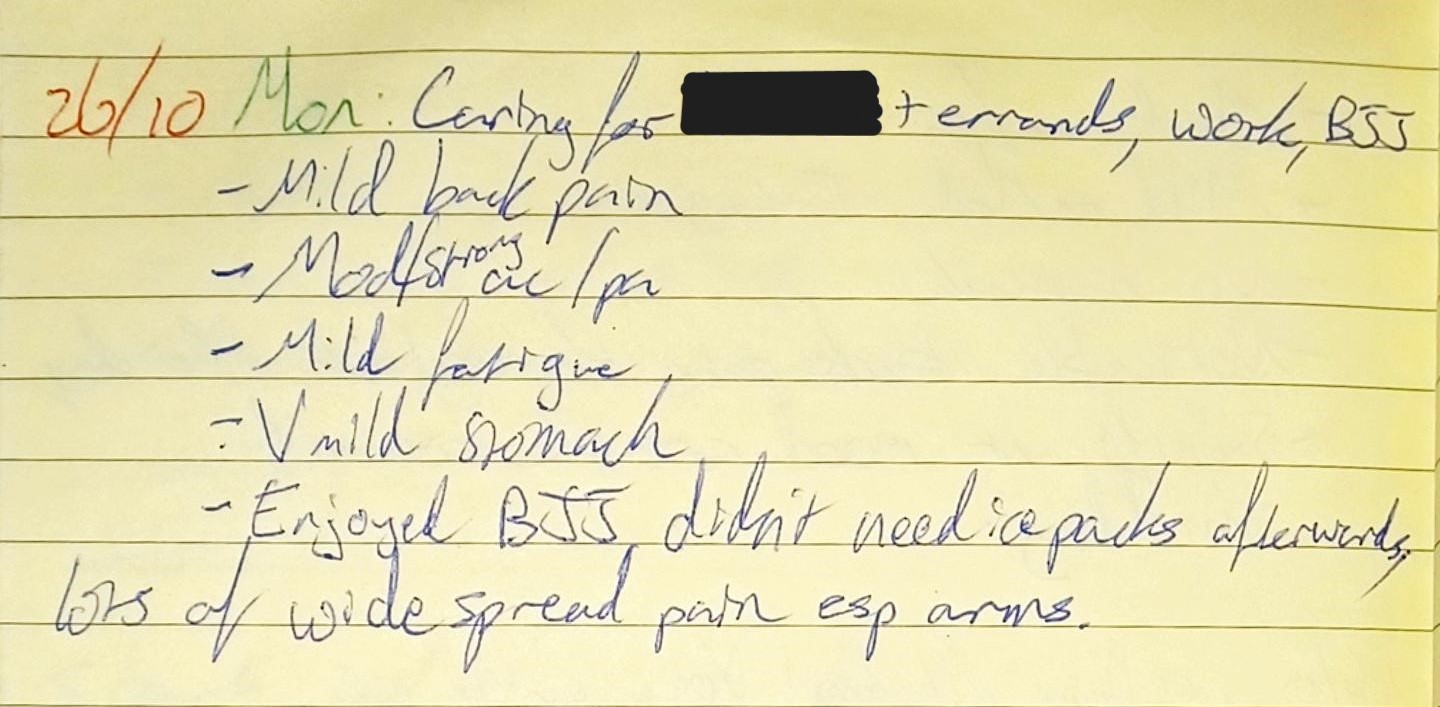 26/10 Mon: Caring for + errands, work, BJJ
- Mild back pain
- Mod/strong ac/pa
- Mild fatigue
- V mild stomach
- Enjoyed BJJ, didn't need icepacks afterwards,
lots of widespread pain esp arms.